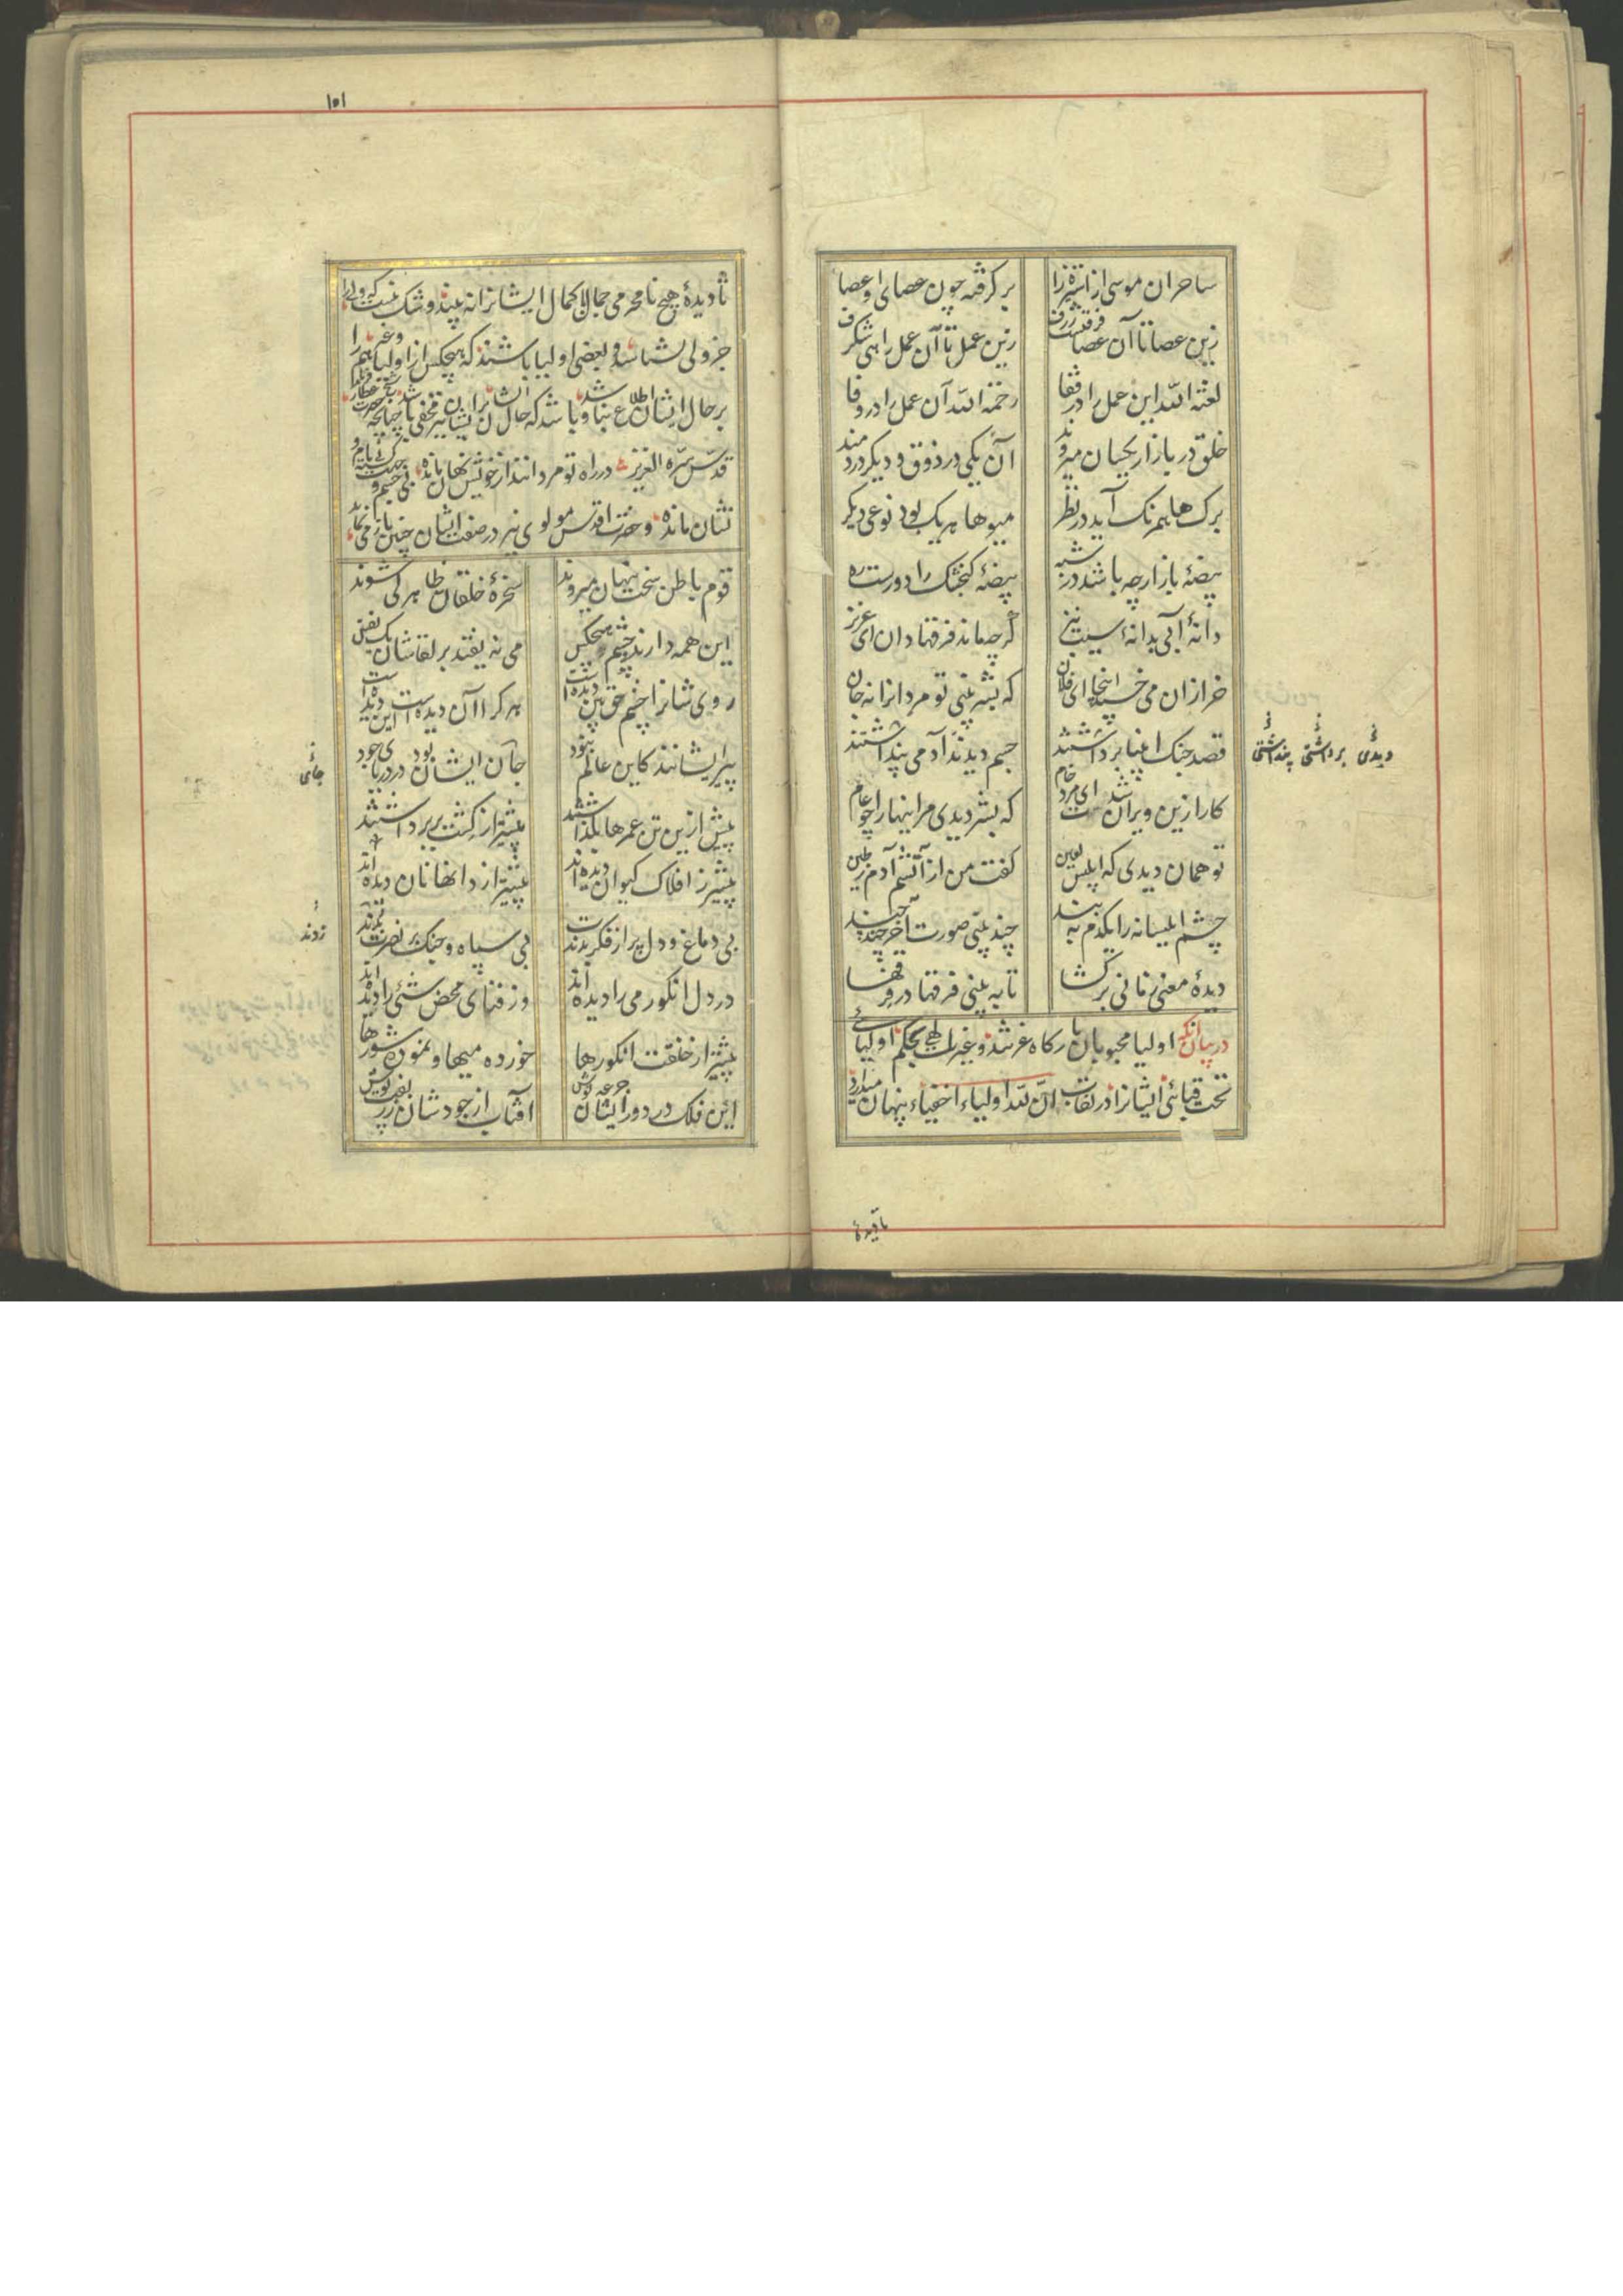 ساحران موسی از استیزه را
بر گرفته چون عصای او عصا
زین عصا تا آن عصا فرقیست ژرف
زین عمل تا آن عمل راهی شگرف
لعنة الله این عمل را در قفا
رحمة الله آن عمل را در وفا
خلق در بازار یکسان میروند
آن یکی در ذوق و دیگر دردمند
برک ها همرنک آید در نظر
میوها هر یک بود نوعی دیگر
بیضهٔ باز ارچه باشد در شبه
بیضهٔ گنجشک را دورست ره
دانهٔ آبی بدانهٔ سیب نیز
گرچه ماند فرقها دان ای عزیز
خر ازان می خسپد اینجا ای فلان
که بشر بینی تو مردانرا نه جان
قصد جنک انبیا برداشتند
جسم دیدند آدمی پنداشتند
کار ازین ویران شدست ای مرد خام
که بشر دیدی مر اینها را چو عام
تو همان دیدی که ابلیس لعین
گفت من از آتشم آدم ز طین
چشم ابلیسانه را یکدم به بند
چند بینی صورت آخر چند چند
دیدهٔ معنی زمانی برکشا
تا به بینی فرقها در فرقها
در بیان آنکه اولیا محبوبان بارگاه عزتند و غیرت الهی بحکم اولیائی
تحت قبائی ایشانرا در نقاب ان لله اولیاء اخفیاء پنهان میدارد
تا دیدهٔ
دیدی برداشتی پنداشتی
۱۵۱
تا دیدهٔ هیچ نامحرمی جمال با کمال ایشانرا نه بیند و شک نیست که ولی را
جز ولی نشناسد و بعضی اولیا باشند که هیچکس از اولیا و غیرهم را
بر حال ایشان اطلاع نباشد و باشد که حال ایشان بر ایشان نیز مخفی باشد چنانچه حضرت شیخ عطار
قدس سره العزیز در راه تو مردانند از خویش نهان مانده بی جسم و جهت گشته بی نام و
نشان مانده و حضرت اقدس مولوی نیز در صفت ایشان چنین باز می نماید
قوم باطن سخت پنهان میروند
سخرهٔ خلقان ظاهر کی شوند
این همه دارند و چشم هیچکس
می نه یفتد بر لقاشان یک نفس
روی شانرا چشم حق بین دیده است
هر کرا آن دیده است این دیده است
پیر ایشانند کاین عالم نبود
جان ایشان بود در دریای جود
پیش ازین تن عمرها بگذاشتند
پیشتر از کشت بر برداشتند
پیشتر ز افلاک کیوان دیده اند
پیشتر از دانها نان دیده اند
بی دماغ و دل پر از فکرت بدند
بی سپاه و جنک بر نصرت
در دل انگور می را دیده اند
وز فنای محض شئی را دیده اند
پیشتر از خلقت انگورها
خورده میها و نموده شورها
این فلک در دور ایشان جرعه نوش
آفتاب از جودشان زربفت پوش
جائی
زدند